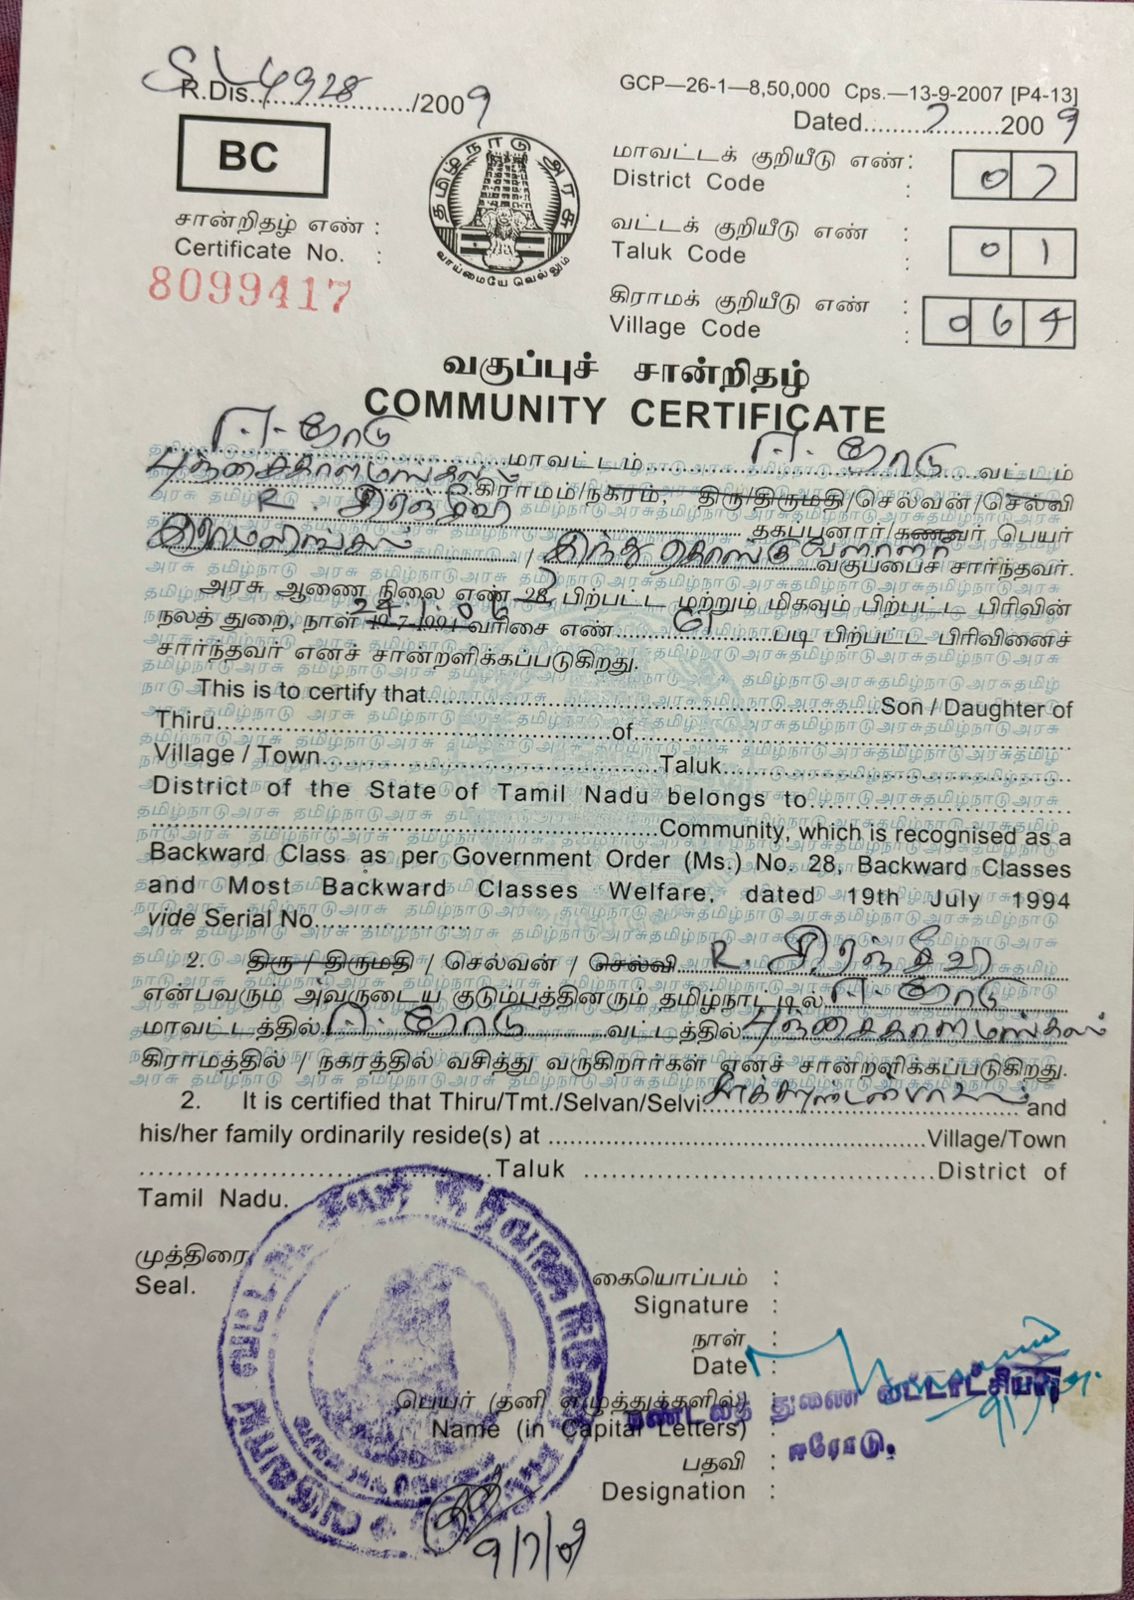 SL 4928
R.Dis......................./2009
GCP—26-1—8,50,000 Cps.—13-9-2007 [P4-13]
Dated..........7..........2009
BC
தமிழ்நாடு அரசு
வாய்மையே வெல்லும்
மாவட்டக் குறியீடு எண் :
District Code : 07
வட்டக் குறியீடு எண் :
Taluk Code : 01
கிராமக் குறியீடு எண் :
Village Code : 064
சான்றிதழ் எண் :
Certificate No. :
8099417
வகுப்புச் சான்றிதழ்
COMMUNITY CERTIFICATE
ஈரோடு மாவட்டம் ஈரோடு வட்டம்
கிராமம்/நகரம், திரு/திருமதி/செல்வன்/செல்வி
R. சிரஞ்சீவி தகப்பனார்/கணவர் பெயர்
இராமலிங்கம் / இந்து கொங்கு வேளாளர் வகுப்பைச் சார்ந்தவர்.
அரசு ஆணை நிலை எண் 28, பிற்பட்ட மற்றும் மிகவும் பிற்பட்ட பிரிவின்
நலத் துறை, நாள் 19-7-1994 வரிசை எண் படி பிற்பட்ட பிரிவினைச்
சார்ந்தவர் எனச் சான்றளிக்கப்படுகிறது.
This is to certify that..........Son / Daughter of
Thiru..........of..........
Village / Town..........Taluk..........
District of the State of Tamil Nadu belongs to..........
..........Community, which is recognised as a
Backward Class as per Government Order (Ms.) No. 28, Backward Classes
and Most Backward Classes Welfare, dated 19th July 1994
vide Serial No..........
2. திரு / திருமதி / செல்வன் / செல்வி R. சிரஞ்சீவி
என்பவரும் அவருடைய குடும்பத்தினரும் தமிழ்நாட்டில் ஈரோடு
மாவட்டத்தில் ஈரோடு வட்டத்தில்
கிராமத்தில் / நகரத்தில் வசித்து வருகிறார்கள் எனச் சான்றளிக்கப்படுகிறது.
2. It is certified that Thiru/Tmt./Selvan/Selvi..........and
his/her family ordinarily reside(s) at ..........Village/Town
..........Taluk ..........District of
Tamil Nadu.
முத்திரை
Seal.
கையொப்பம் :
Signature :
நாள் :
Date :
பெயர் (தனி எழுத்துக்களில்) :
Name (in Capital Letters) :
மண்டலத் துணை வட்டாட்சியர்
ஈரோடு.
பதவி :
Designation :
9/7/09